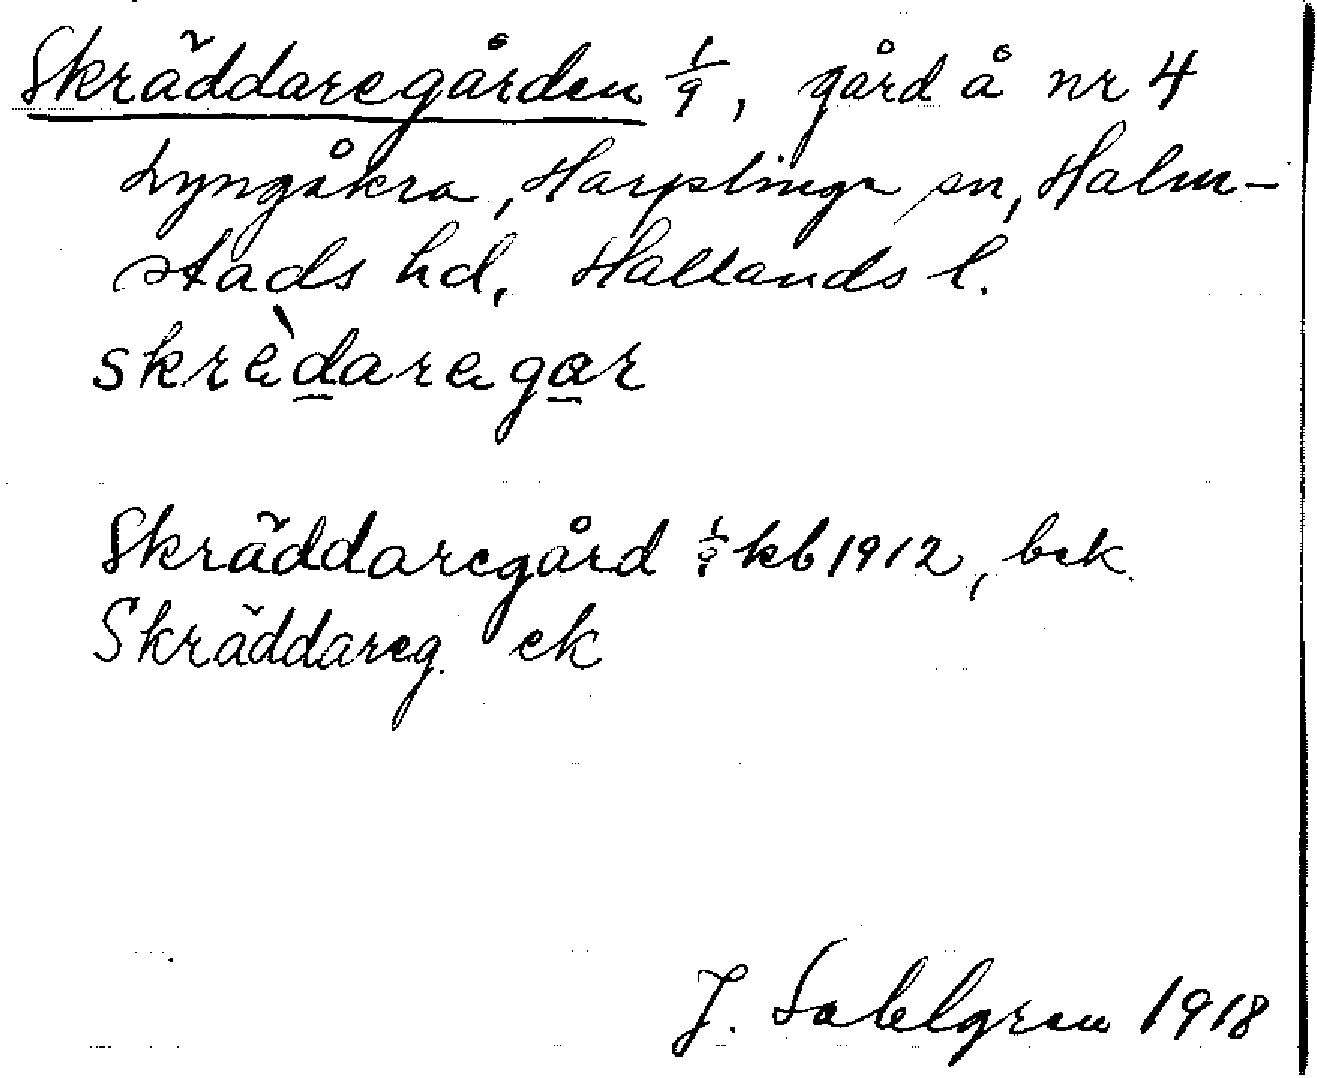 Skräddaregården 1/9, gård å nr 4
Lyngåkra, Harplinge sn, Halm-
stads hd, Hallands l.
skrèdaregar
Skräddaregård 1/9 kb 1912, bek.
Skräddareg. ek
J. Sahlgren 1918